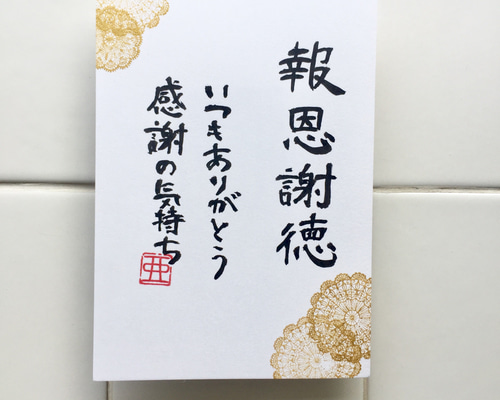 報恩謝徳
いつもありがとう
感謝の気持ち
亜